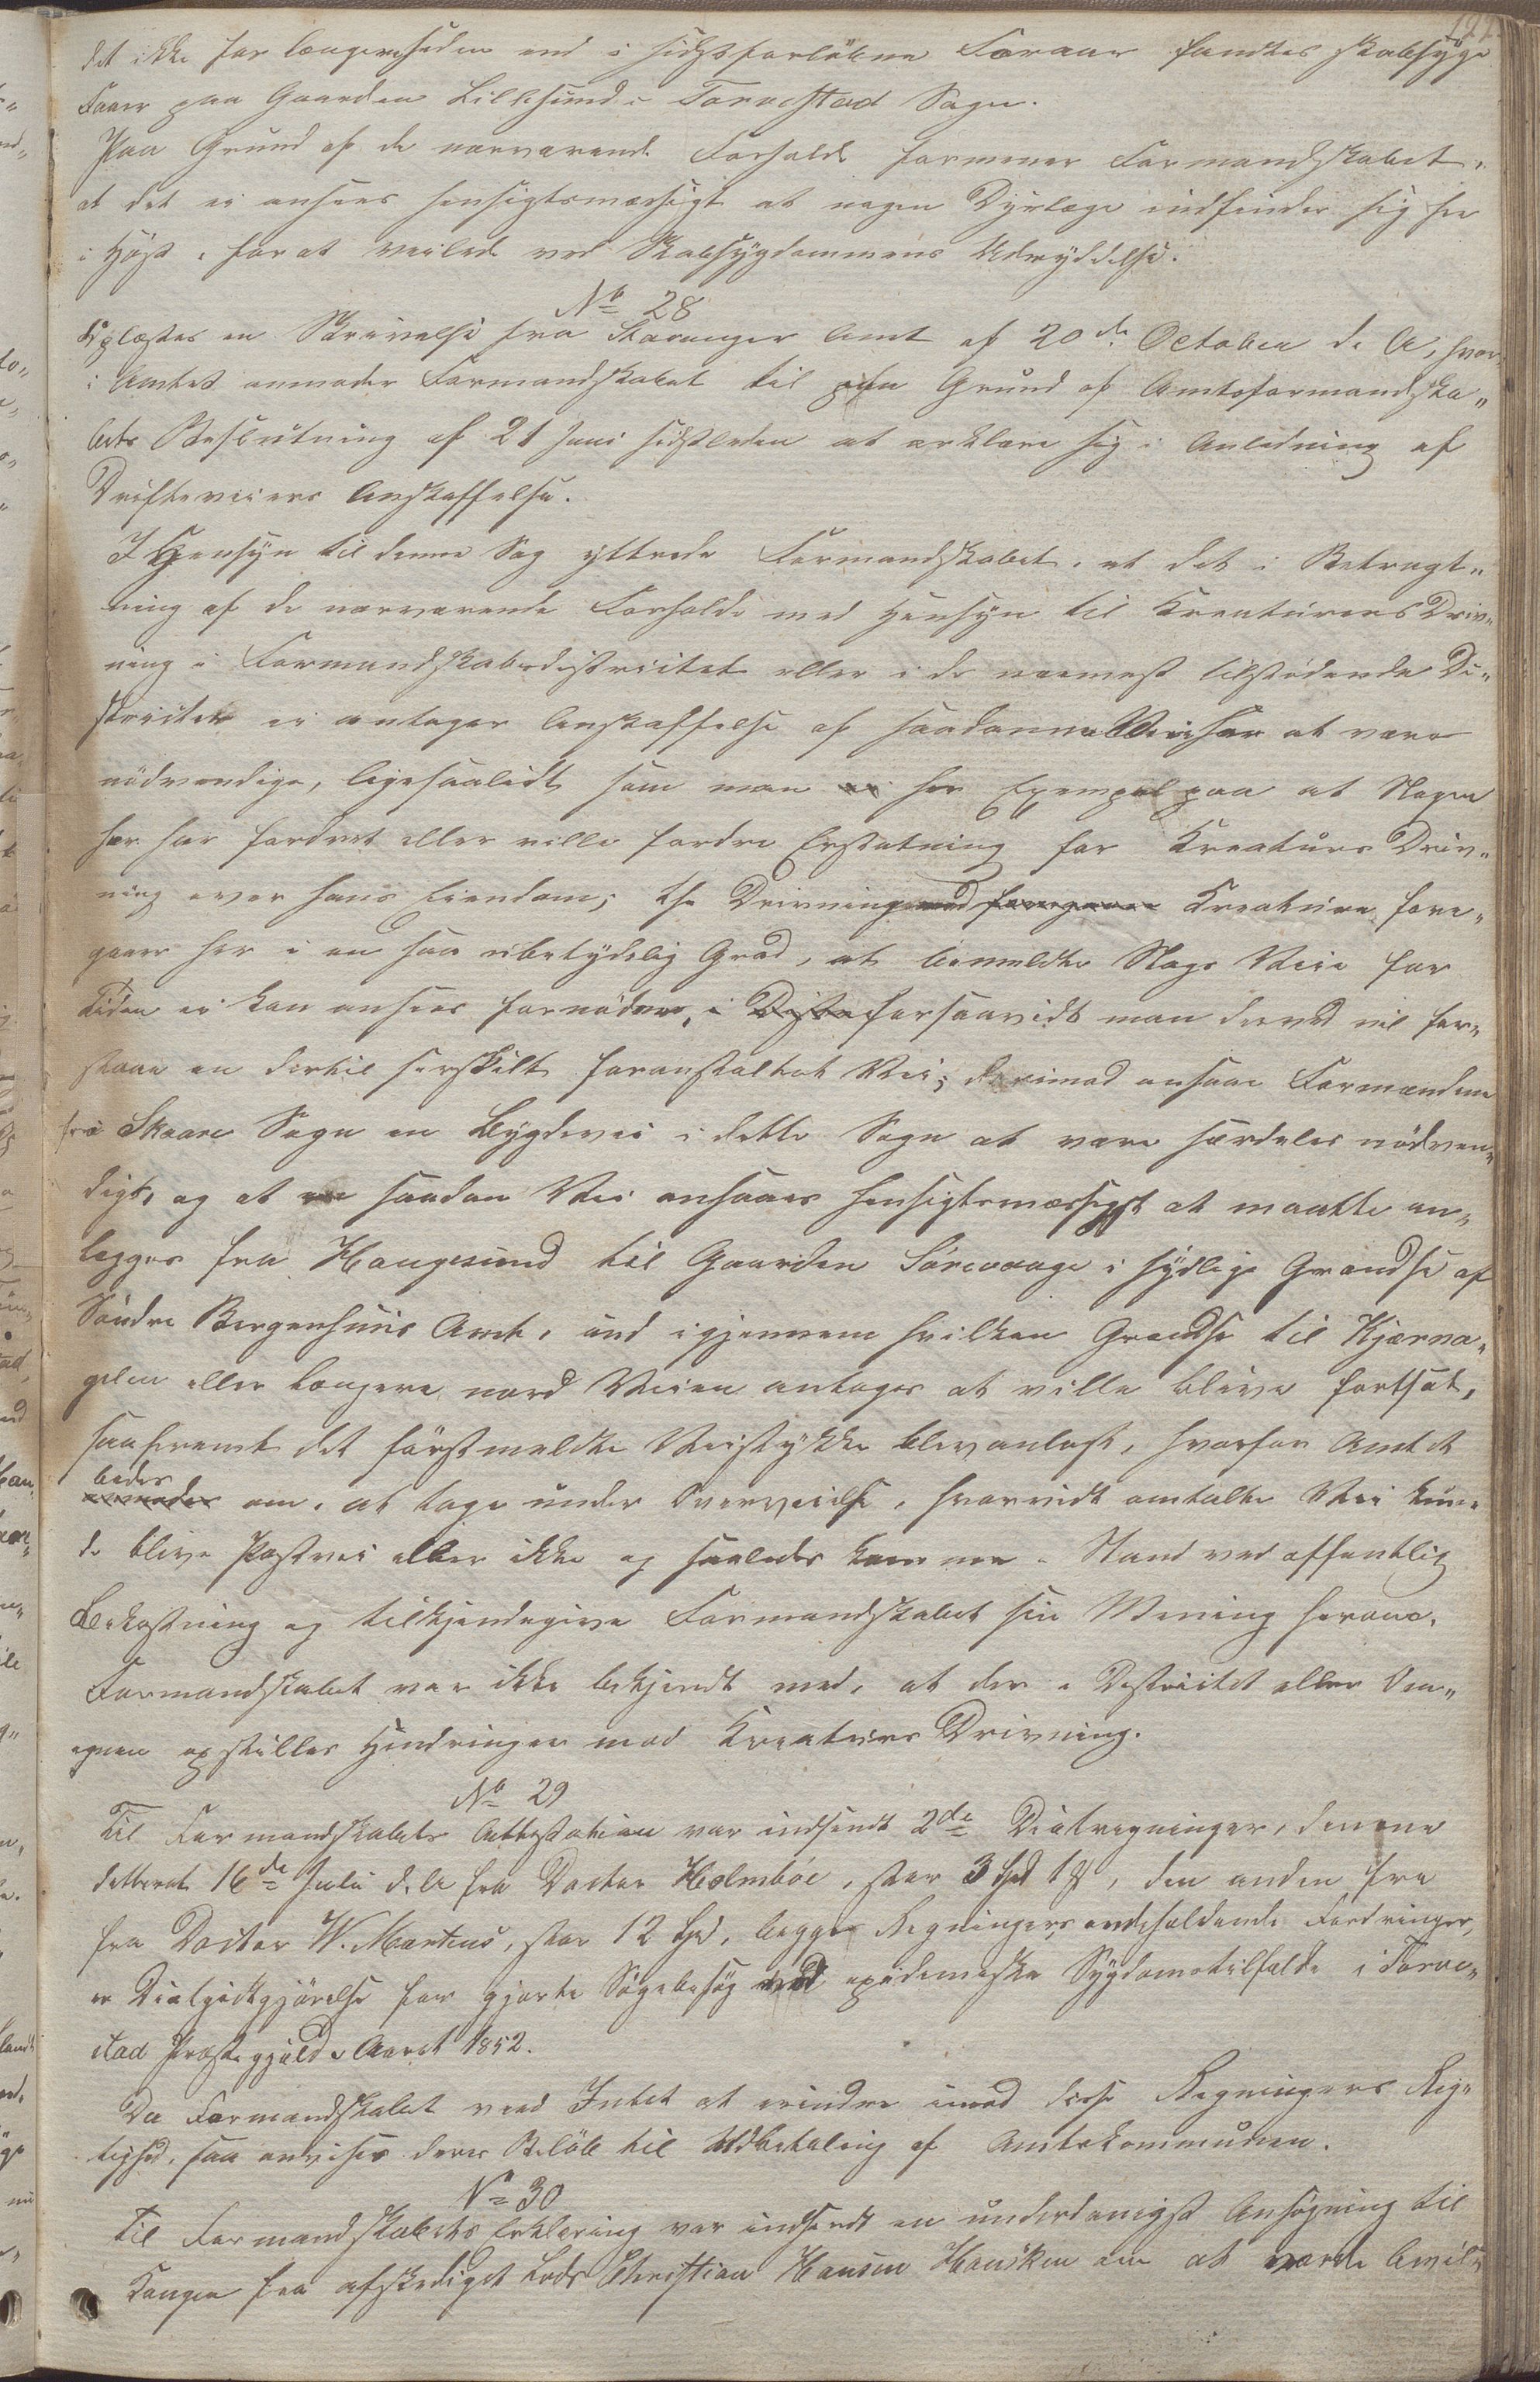 det ikke for længeresiden end i sidstforløbne Foraar fandtes skabsyge
Faar paa Gaarden Lillesund i Torvestad Sogn.
Paa Grund af de nærværende Forholde formener Formandskabet,
at det ei ansees hensigtsmæssigt at nogen Dyrlæge indfinder sig her
i Høst, for at veilede ved Skabsygdommens Udryddelse.
No 28
Oplæstes en Skrivelse fra Stavanger Amt af 20de October d. A., hvor„
i Amtet anmoder Formandskabet til paa Grund af Amtsformandska„
bets Beslutning af 21 Juni sidstleden at erklære sig i Anledning af
Drifteveiers Anskaffelse.
I Hensyn til denne Sag yttrede Formandskabet, at det i Betragt„
ning af de nærværende Forholde med Hensyn til Kreaturers Driv„
ning i Formandskabsdistrictet eller i de nærmest tilstødende Di„
stricter ei antager Anskaffelse af saadanne Veie her at være
nødvendige, ligesaalidt som man ei har Exempel paa at Nogen
her har fordret eller ville fordre Erstatning for Kreaturs Driv„
ning over hans Eiendom; thi Drivning med foregaaer Kreature fore„
gaaer her i en saa ubetydelig Grad, at bemeldte Slags Veie for
Tiden ei kan ansees fornødne, i forsaavidt man derved vil for„
staae en dertil særskilt foranstaltet Vei; derimod ansaae Formændene
fra Skaare Sogn en Bygdevei i dette Sogn at være særdeles nødven„
digt, og at en saadan Vei ansaaes hensigtsmæssigst at maatte an„
lægges fra Haugesund til Gaarden Sørevaage i sydlige Grændse af
Søndre Bergenhuus Amt, ind igjennem hvilken Grændse til Kjærna„
gelen eller længere nord Veien antages at ville blive fortsat,
saafremt det førstmeldte Veistykke blev anlagt, hvorfor Amtet
bedes
anmodes om, at tage under Overveielse, hvorvidt omtalte Vei kun„
de blive Postvei eller ikke og saaledes komme i Stand ved offentlig
Bekostning og tilkjendegive Formandskabet sin Mening herom.
Formandskabet var ikke bekjendt med, at der i Districtet eller Om„
egnen opstilles Hindringer mod Kreaturers Drivning.
No 29
Til Formandskabets Attestation var indsendt 2de Diætregninger, den ene
datteret 16de Juli d. A. fra Doctor Holmboe, stor 3 Spd 1 ß, den anden fra
fra Doctor W. Martens, stor 12 Spd, begge Regninger, indeholdende Fordringer,
er Diætgodtgjørelse for gjorte Sygebesøg ved epidemiske Sygdomstilfælde i Torve„
stad Præstegjæld i Aaret 1852.
Da Formandskabet veed Intet at erindre imod disse Regningers Rig„
tighed, saa anvises deres Beløb til Udbetaling af Amtskommunen.
No 30
Til Formandskabets Erklæring var indsendt en underdanigst Ansøgning til
Kongen fra afskediget Lods Christian Hansen Hausken om at vorde bevil„